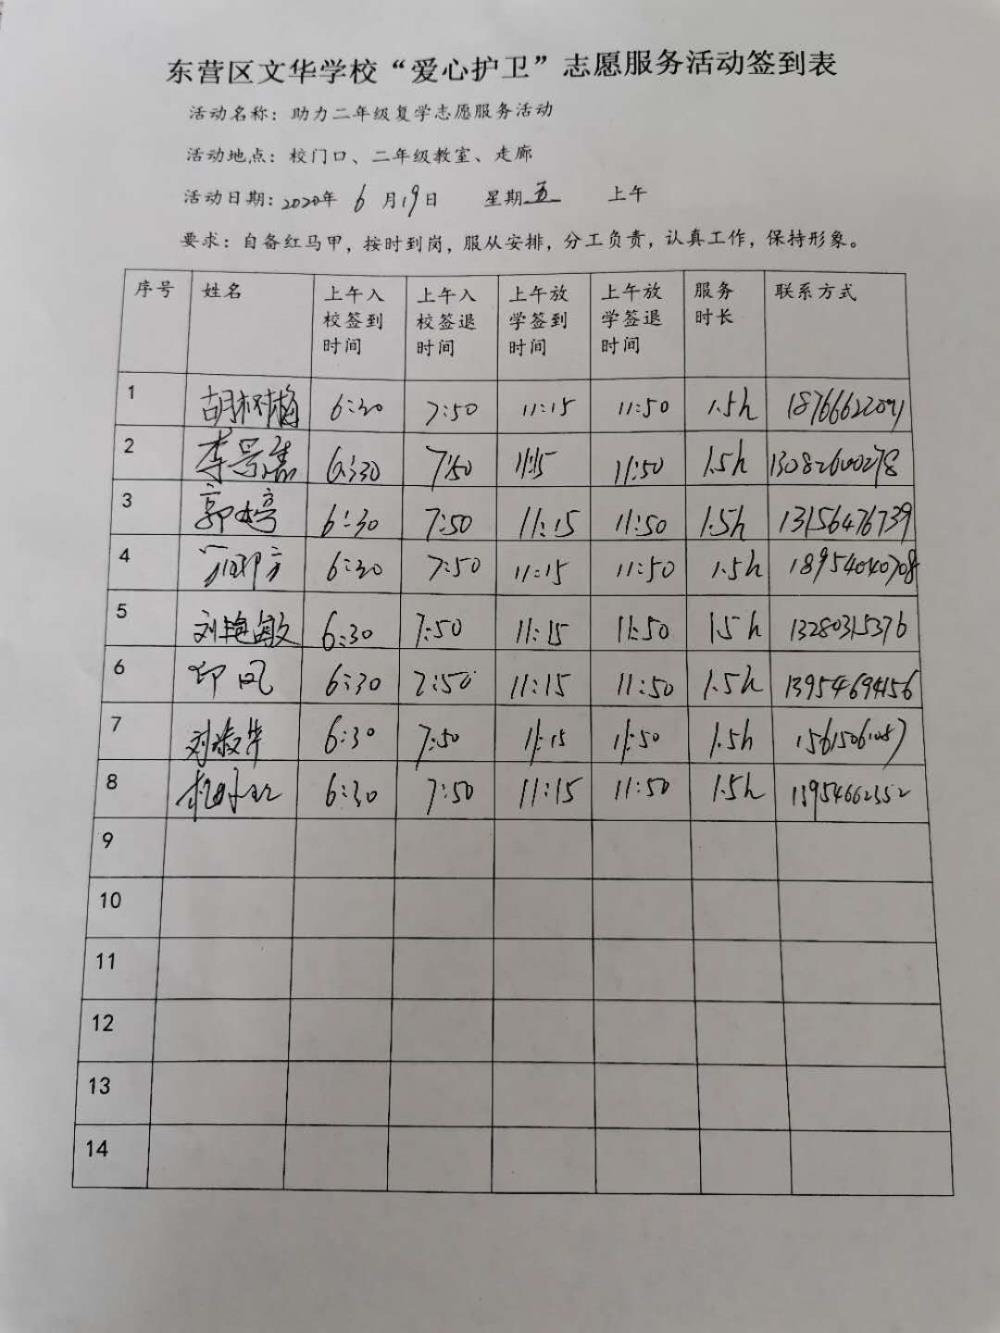 东营区文华学校“爱心护卫”志愿服务活动签到表
活动名称：助力二年级复学志愿服务活动
活动地点：校门口、二年级教室、走廊
活动日期：2020年 6 月19日 星期五 上午
要求：自备红马甲，按时到岗，服从安排，分工负责，认真工作，保持形象。
序号 姓名 上午入校签到时间 上午入校签退时间 上午放学签到时间 上午放学签退时间 服务时长 联系方式
1 胡树梅 6:30 7:50 11:15 11:50 1.5h
2 6:30 7:50 11:15 11:50 1.5h 13082600278
3 郭婷 6:30 7:50 11:15 11:50 1.5h 13156476739
4 6:30 7:50 11:15 11:50 1.5h 18954040708
5 刘艳敏 6:30 7:50 11:15 11:50 1.5h 13280315376
6 6:30 7:50 11:15 11:50 1.5h 13954694156
7 刘淑华 6:30 7:50 11:15 11:50 1.5h
8 6:30 7:50 11:15 11:50 1.5h 13954662352
9
10
11
12
13
14